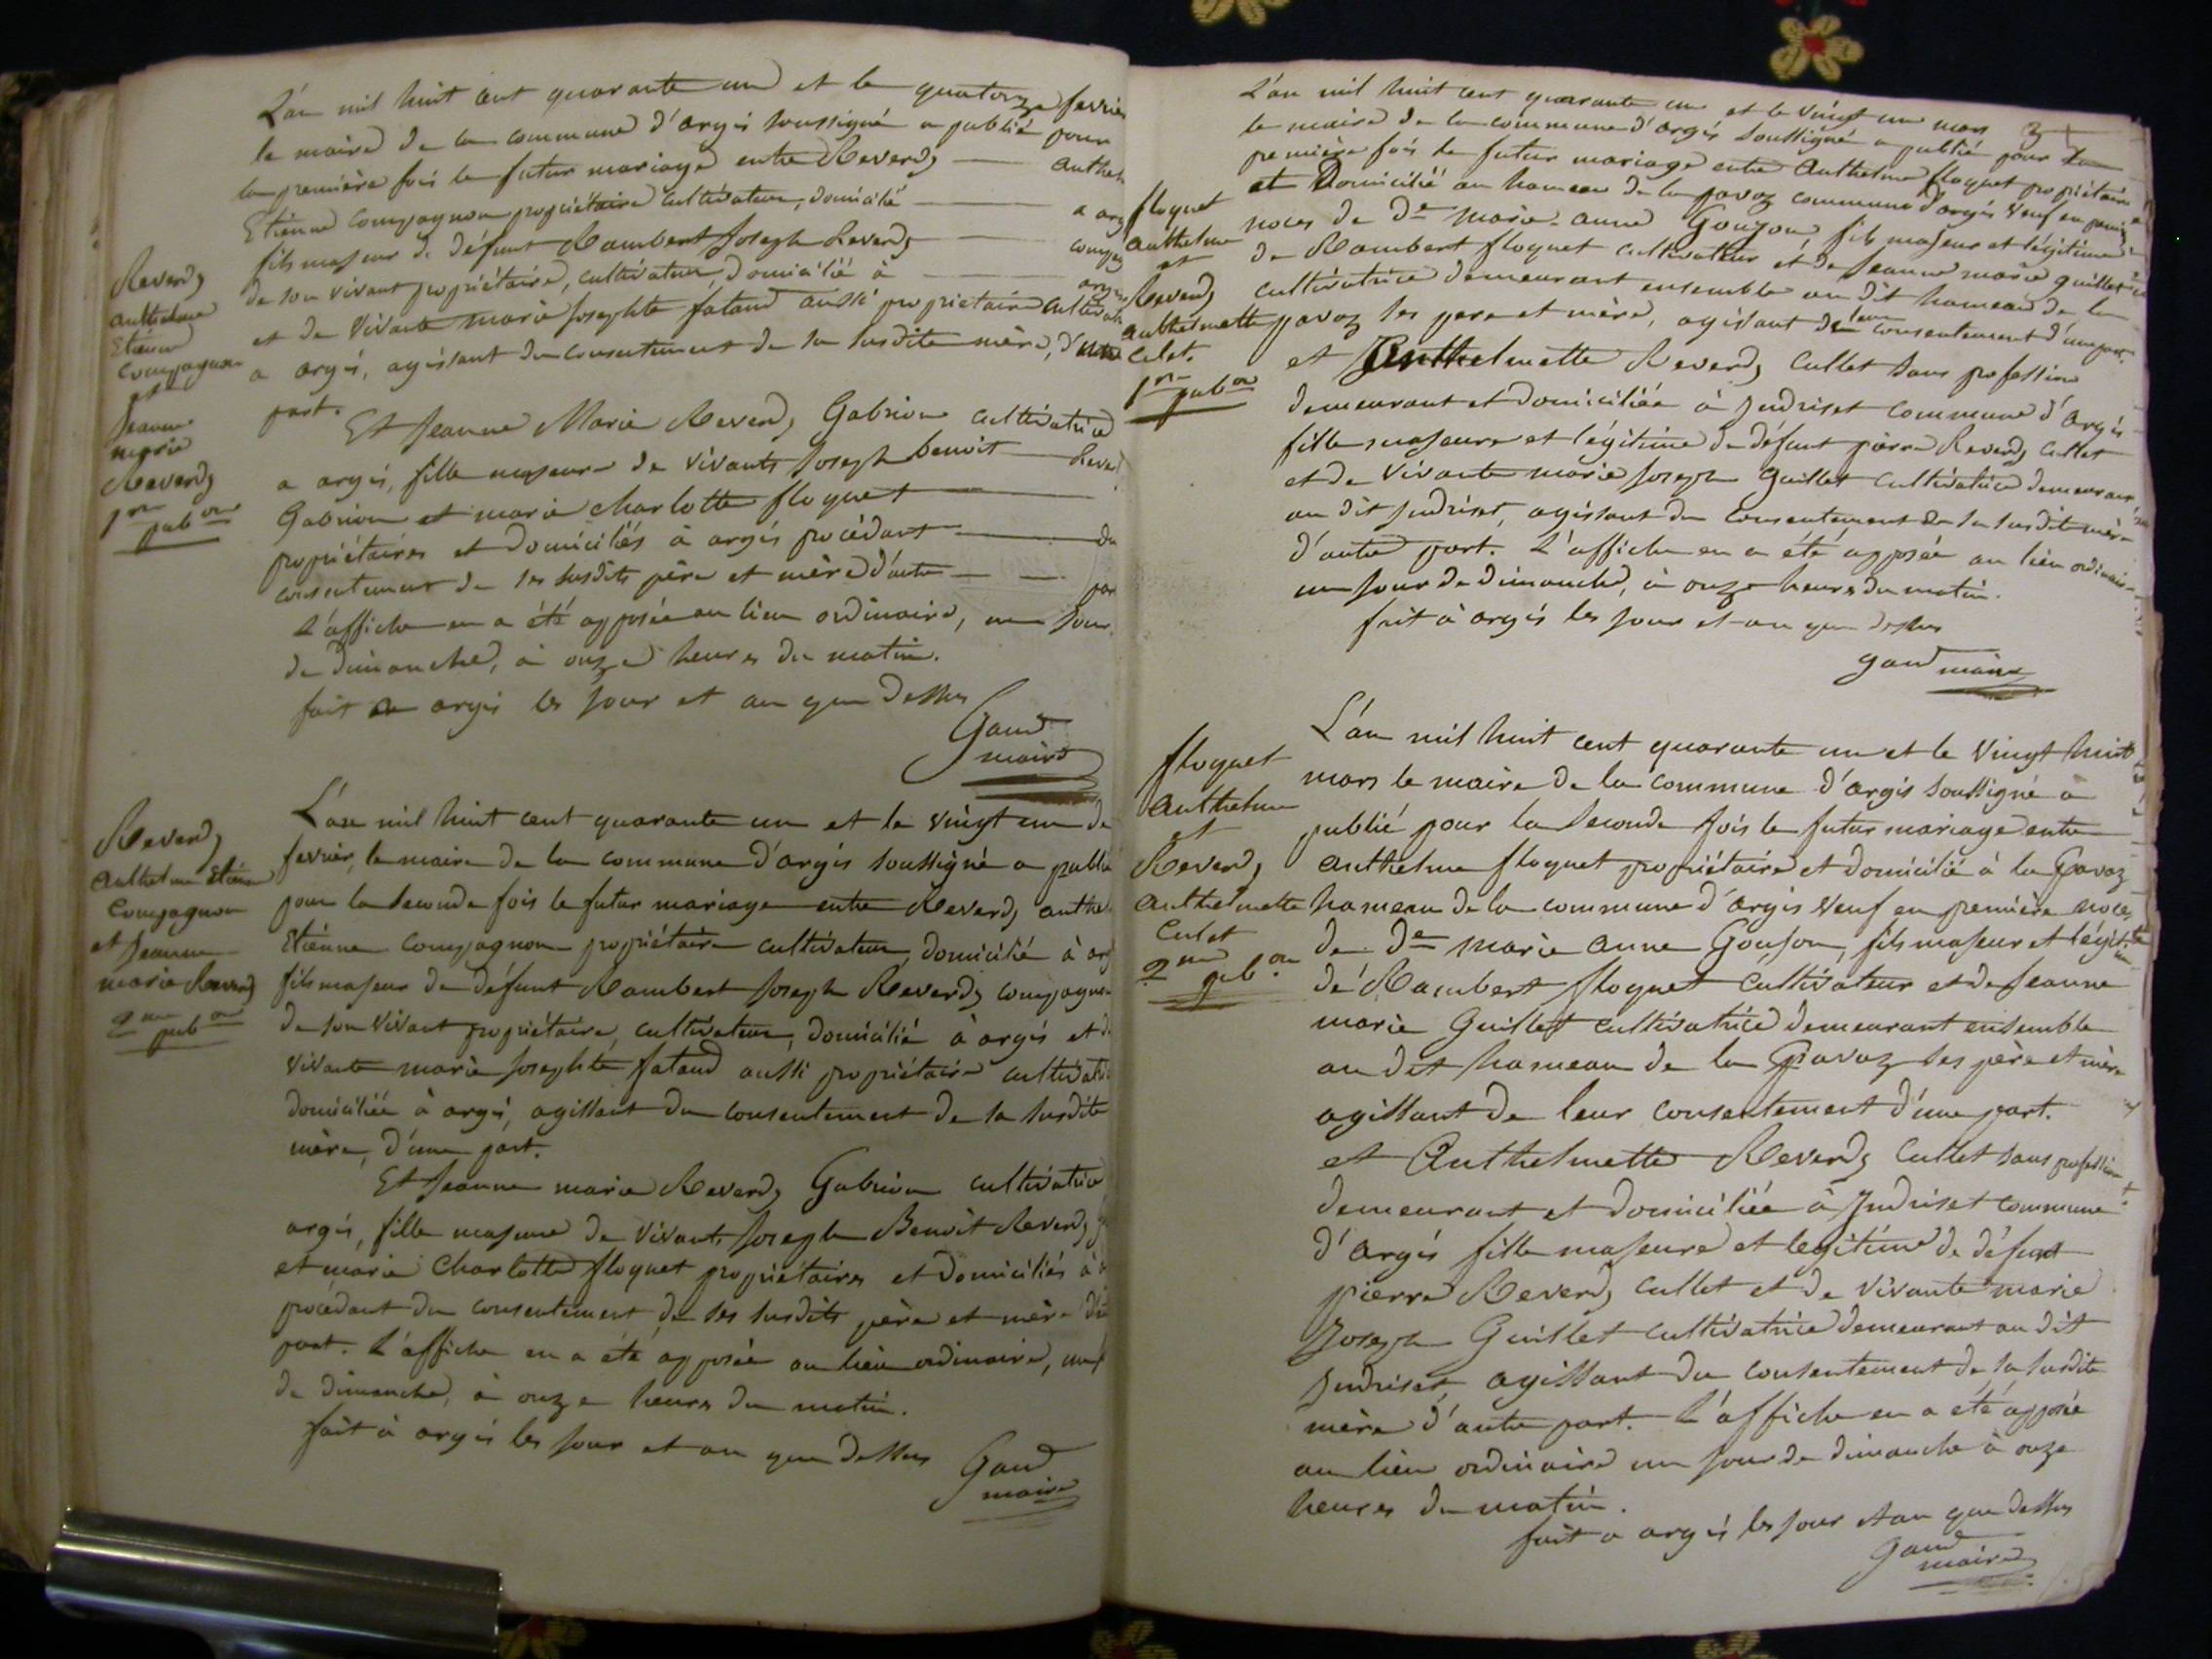 L'an mil huit cent quarante un et le quatorze fevrier
le maire de la commune d'argis soussigné a publié pour
la première fois le futur mariage entre Reverdy — anthel
Etienne compagnon propriétaire cultivateur, domicilié — a arg
fils majeur de défunt Rambert Joseph Reverdy — compag
de son vivant propriétaire, cultivateur, domicilié à — argis
et de vivante marie Josephte fataud aussi propriétaire cultivat
a argis, agissant du consentement de sa susdite mère, d'une
part.
Reverdy
anthelme
Etienne
compagnon
et
Jeanne
marie
Reverdy
1re pubon
Et Jeanne Marie Reverdy Gabrion cultivatrice
a argis, fille majeure de vivants Joseph benoit — Reverd
Gabrion et marie charlotte floquet —
propriétaires et domiciliés à argis procédant — du
consentement de ses susdits père et mère d'autre — — par
L'affiche en a été apposée au lieu ordinaire, un jour
de dimanche, à onze heures du matin.
fait a argis les jour et an que dessus
Gaud
maire
Reverdy
anthelme Etienne
Compagnon
et Jeanne
marie Reverdy
2me pubon
L'an mil huit cent quarante un et le vingt un de
fevrier, le maire de la commune d'argis soussigné a publié
pour la seconde fois le futur mariage entre Reverdy anthel
Etienne compagnon propriétaire cultivateur, domicilié à arg
fils majeur de défunt Rambert Joseph Reverdy compagnon
de son vivant propriétaire, cultivateur, domicilié à argis et d
vivante marie Josephte fataud aussi propriétaire cultivatri
domiciliée à argis, agissant du consentement de sa susdite
mère, d'une part.
Et Jeanne marie Reverdy Gabrion cultivatrice
argis, fille majeure de vivants Joseph Benoit Reverdy g
et marie Charlotte floquet propriétaires et domiciliés à a
procédant du consentement de ses susdits père et mère d'au
part. L'affiche en a été apposée au lieu ordinaire, un j
de dimanche, à onze heures du matin.
fait à argis les jour et an que dessus
Gaud
maire
L'an mil huit cent quarante un et le vingt un mars
le maire de la commune d'argis soussigné a publié pour la
première fois le futur mariage entre Anthelme floquet propriétaire
et Domicilié au hameau de la pavaz commune d'argis veuf en premiè
noces de De marie-anne Goujon, fils majeur et légitime
de Rambert floquet cultivateur et de Jeanne marie guillet
cultivatrice demeurant ensemble au dit hameau de la
pavaz ses pere et mère, agissant de leur consentement d'une part.
floquet
anthelme
et
Reverdy
anthelmette
culet.
1re pubon
et Anthelmette Reverdy Cullet sans profession
demeurant et domiciliée à Indriset commune d'Argis
fille majeure et légitime de défunt pierre Reverdy Cullet
et de vivante marie Joseph Guillet cultivatrice demeurant
au dit Indriset, agissant du consentement de sa susdite mère
d'autre part. L'affiche en a été apposée au lieu ordinaire
un jour de dimanche, à onze heures du matin.
fait à argis les jour et an que dessus
gaud maire
floquet
anthelme
et
Reverdy
anthelmette
Culet
2me pubon
L'an mil huit cent quarante un et le vingt huit
mars le maire de la commune d'argis soussigné à
publié pour la seconde fois le futur mariage entre
anthelme floquet propriétaire et domicilié à la Pavaz
hameau de la commune d'argis veuf en première noces
de De marie anne Goujon, fils majeur et légitime
dé Rambert floquet cultivateur et de Jeanne
marie Guillet cultivatrice demeurant ensemble
au dit hameau de la Pavaz ses père et mère
agissant de leur consentement d'une part.
et Anthelmette Reverdy Cullet sans profession
demeurant et domiciliée à Indriset commune
d'argis fille majeure et legitime de défunt
pierre Reverdy cullet et de vivante marie
Joseph Guillet cultivatrice demeurant au dit
Indriset agissant du consentement de sa susdite
mère d'autre part. L'affiche en a été apposée
au lieu ordinaire un jour de dimanche à onze
heures du matin.
fait a argis les jour et an que dessus
gaud
maire